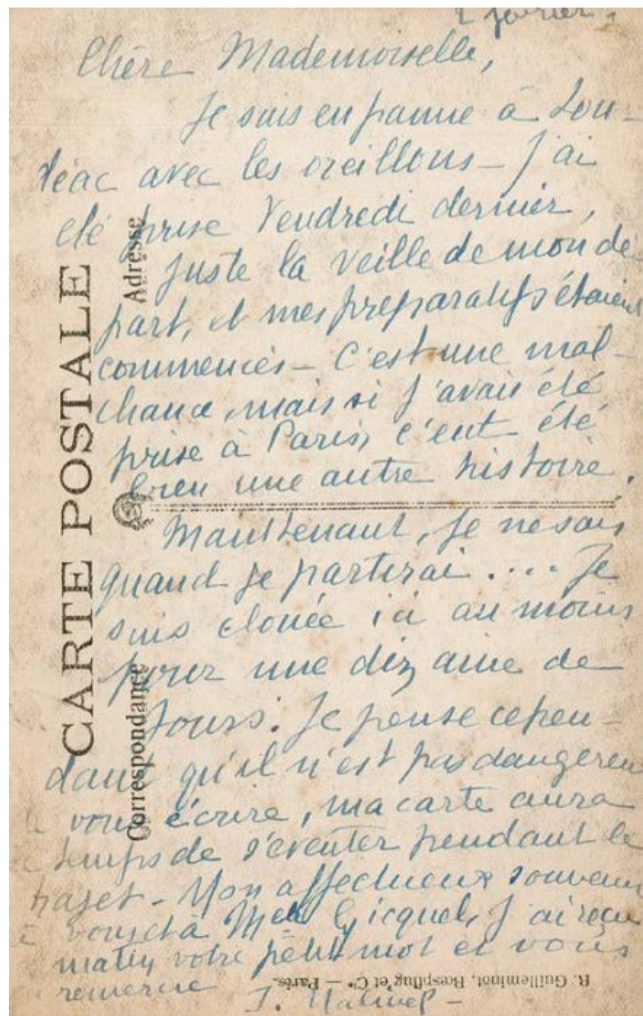 2 février.
Chère Mademoiselle,
Je suis en panne à Lou-
déac avec les oreillons - J'ai
été prise Vendredi dernier,
juste la veille de mon dé
part, et mes préparatifs étaient
commencés - C'est une mal-
chance, mais si j'avais été
prise à Paris, c'eut été
bien une autre histoire.
Maintenant, je ne sais
quand je partirai .... Je
suis clouée ici au moins
pour une dizaine de
Jours. Je pense cepen-
dant qu'il n'est pas dangereux
de vous écrire, ma carte aura
le temps de s'éventer pendant le
trajet - Mon affectueux souvenir
à vous et à Melle Gicquel, J'ai reçu
matin votre petit mot et vous
remercie
CARTE POSTALE
Correspondance
Adresse
R. Guilleminot, Bœspflug et Cie - Paris.